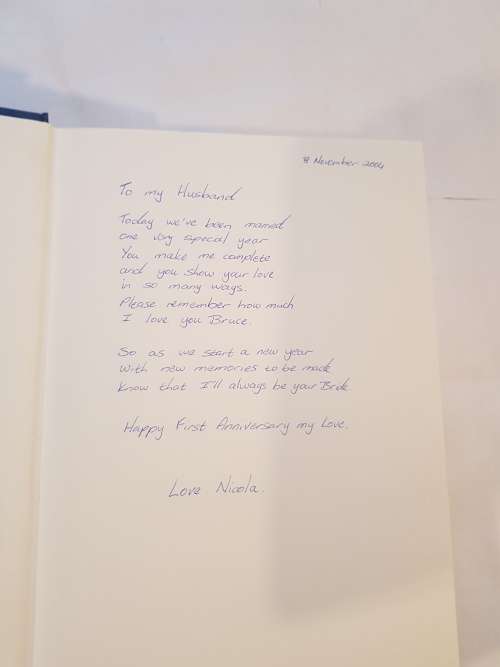 8 November 2004
To my Husband
Today we've been married
one very special year
You make me complete
and you show your love
in so many ways.
Please remember how much
I love you Bruce.
So as we start a new year
With new memories to be made
Know that I'll always be your Bride.
Happy First Anniversary my Love.
Love Nicola.